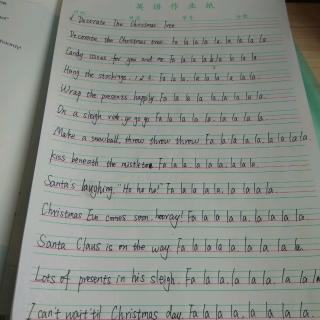 英语作业纸
Decorate The Christmas Tree
Decorate the Christmas tree. Fa la la la la. la la la la.
Candy canes for you and me. Fa la la la la. la la la la.
Hang the stockings. 1 2 3. Fa la la la la. la la la la.
Wrap the presents happily. Fa la la la la. la la la la.
On a sleigh ride. go go go Fa la la la la. la la la la.
Make a snowball. throw throw throw. Fa la la la la. la la la la.
kiss beneath the mistletoe Fa la la la la. la la la la.
Santa's laughing. "Ho ho ho!" Fa la la la la. la la la la.
Christmas Eve comes soon. hooray! Fa la la la la. la la la la
Santa Claus is on the way. Fa la la la la. la la la la.
Lots of presents in his sleigh. Fa la la la la. la la la la
I can't wait 'til Christmas day. Fa la la la la. la la la